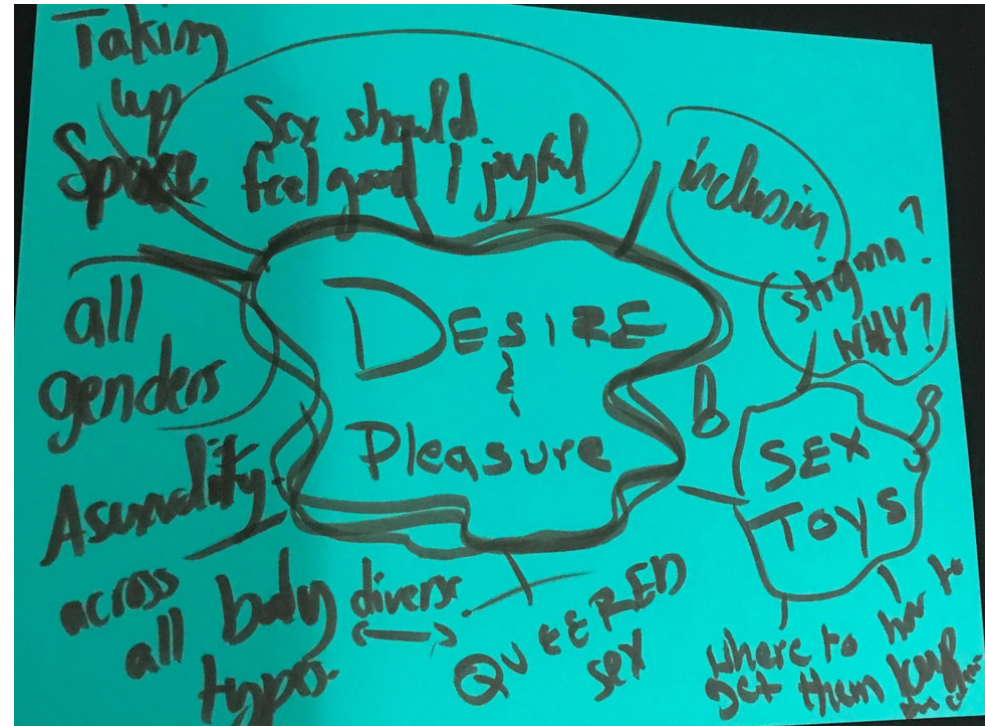 Taking
up
Space
Sex should
feel good / joyful
inclusion
stigma?
WHY?
all
genders
DESIRE
&
Pleasure
SEX
TOYS
Asexuality
across
all
body
types
diverse
QUEERED
sex
where to
get them
how to
keep